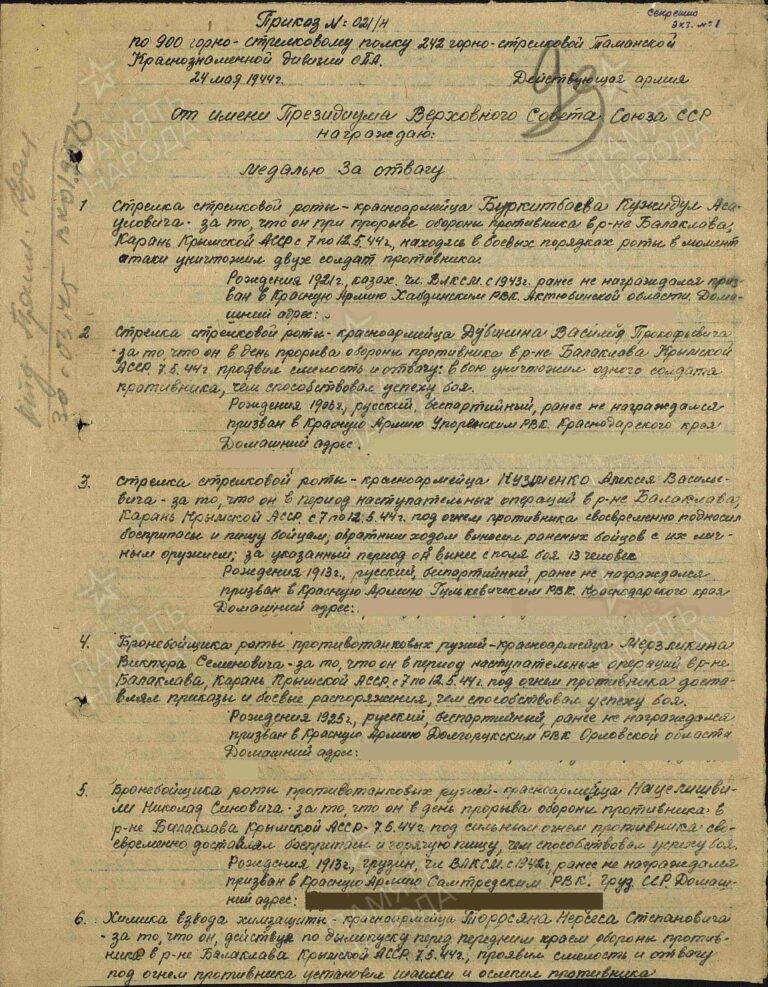 Секретно
Экз. № 1
Приказ №: 021/н
по 900 горно-стрелковому полку 242 горно-стрелковой Таманской
Краснознаменной дивизии ОПА.
24 мая 1944г. Действующая армия
от имени Президиума Верховного Совета Союза ССР
награждаю:
Медалью За отвагу
1 Стрелка стрелковой роты - красноармейца Буркитбаева Кужидул Аса-
уловича - за то, что он при прорыве обороны противника в р-не Балаклава,
Карань Крымской АССР с 7 по 12.5.44г, находясь в боевых порядках роты в момент
атаки уничтожил двух солдат противника.
Рождения 1921г, казах. чл. ВЛКСМ. с 1943г. ранее не награждался приз-
ван в Красную Армию Хабдинским РВК. Актюбинской области. Дома-
шний адрес:
2 Стрелка стрелковой роты - красноармейца Дубинина Василия Прокофьевича
- за то, что он в день прорыва обороны противника в р-не Балаклава Крымской
АССР 7.5.44г проявил смелость и отвагу: в бою уничтожил одного солдата
противника, чем способствовал успеху боя.
Рождения 1906г., русский, беспартийный, ранее не награждался
призван в Красную Армию Упорненским РВК. Краснодарского края
Домашний адрес.
3. Стрелка стрелковой роты - красноармейца Кузменко Алексея Василье-
вича - за то, что он в период наступательных операций в р-не Балаклава,
Карань Крымской АССР. с 7 по 12.5.44г. под огнем противника своевременно подносил
боеприпасы и пищу бойцам, обратним ходом выносил раненых бойцов с их лич-
ным оружием; за указанный период он вынес с поля боя 13 человек
Рождения 1913г., русский, беспартийный, ранее не награждался
призван в Красную Армию Гулькевичским РВК. Краснодарского края
Домашний адрес:
4. Бронебойщика роты противотанковых ружей - красноармейца Мерзликина
Виктора Семеновича - за то, что он в период наступательных операций в р-не
Балаклава, Карань Крымской АССР. с 7 по 12.5.44г. под огнем противника доста-
влял приказы и боевые распоряжения, чем способствовал успеху боя.
Рождения 1925г., русский, беспартийный, ранее не награждался
призван в Красную Армию Долгорукским РВК Орловской области
Домашний адрес:
5. Бронебойщика роты противотанковых ружей - красноармейца Нацелишви-
ли Николая Силовича - за то, что он в день прорыва обороны противника в
р-не Балаклава Крымской АССР - 7.5.44г. под сильным огнем противника сво-
евременно доставлял боеприпасы и горячую пищу, чем способствовал успеху боя.
Рождения 1913г, грузин, чл ВЛКСМ. с 1942г, ранее не награждался
призван в Красную Армию Самтредским РВК. Груз. ССР. Домаш-
ний адрес:
6. Химика взвода химзащиты - красноармейца Торосяна Нерсеса Степановича
- за то, что он, действуя по дымопуску перед передним краем обороны против-
ника в р-не Балаклава Крымской АССР. 7.5.44г., проявил смелость и отвагу
под огнем противника установил шашки и ослепил противника
ПАМЯТЬ
НАРОДА